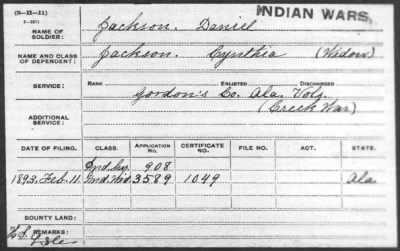 (3-H-11)
INDIAN WARS.
NAME OF SOLDIER: Jackson, Daniel
NAME AND CLASS OF DEPENDENT: Jackson, Cynthia (Widow)
SERVICE: RANK ENLISTED DISCHARGED
Gordon's Co. Ala. Vols.
(Creek War)
ADDITIONAL SERVICE:
DATE OF FILING. CLASS. APPLICATION NO. CERTIFICATE NO. FILE NO. ACT. STATE.
Ind. 908
1893. Feb. 11. Ind. Wid. 3589 1049 Ala
BOUNTY LAND:
REMARKS: